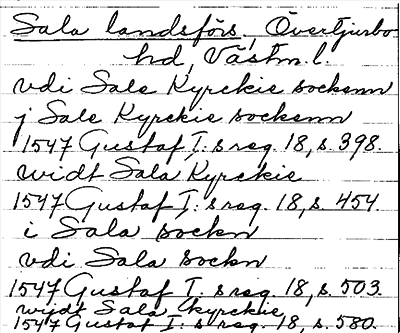 Sala landsförs., Övertjurbo
hd, Västm. l.
vdi Sale Kyrckie socksnn
j Sale Kyrckie socksnn
1547 Gustaf I: s reg. 18, s. 398.
widt Sala Kyrckie
1547 Gustaf I: s reg. 18, s. 454.
i Sala sockn
vdi Sala sockn
1547 Gustaf I: s reg. 18, s. 503.
wijdt Sala kyrckiie
1547 Gustaf I: s reg. 18, s. 580.